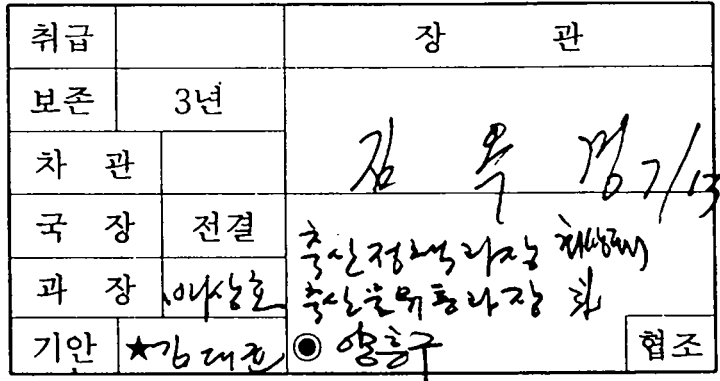 취급 장 관
보존 3년
차 관 김 옥 경 7/13
국 장 전결 축산정책과장
과 장 이상호 축산물유통과장
기안 ★김대균 ◉ 양홍구 협조